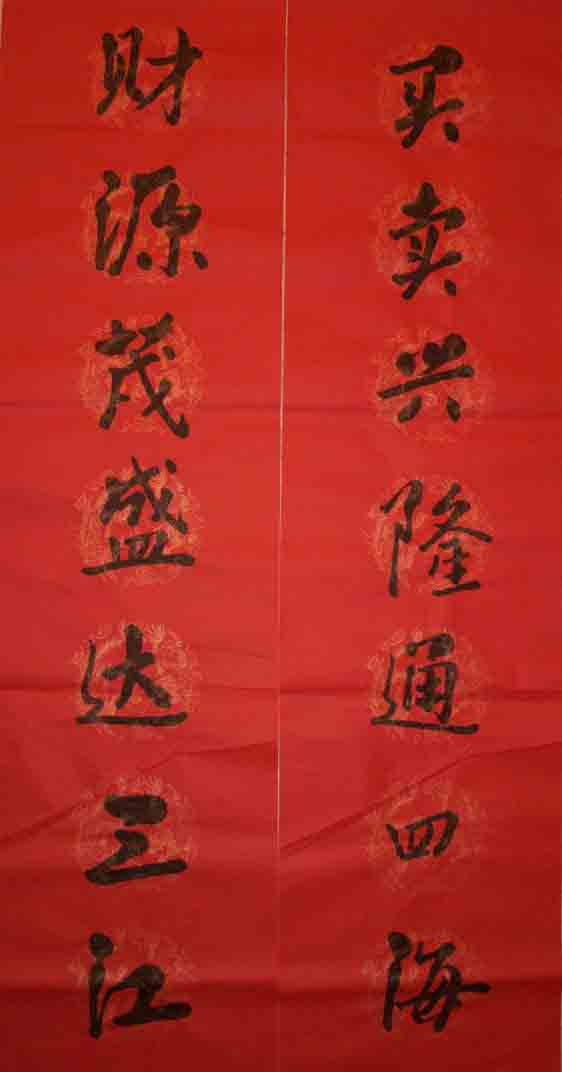 买卖兴隆通四海
财源茂盛达三江